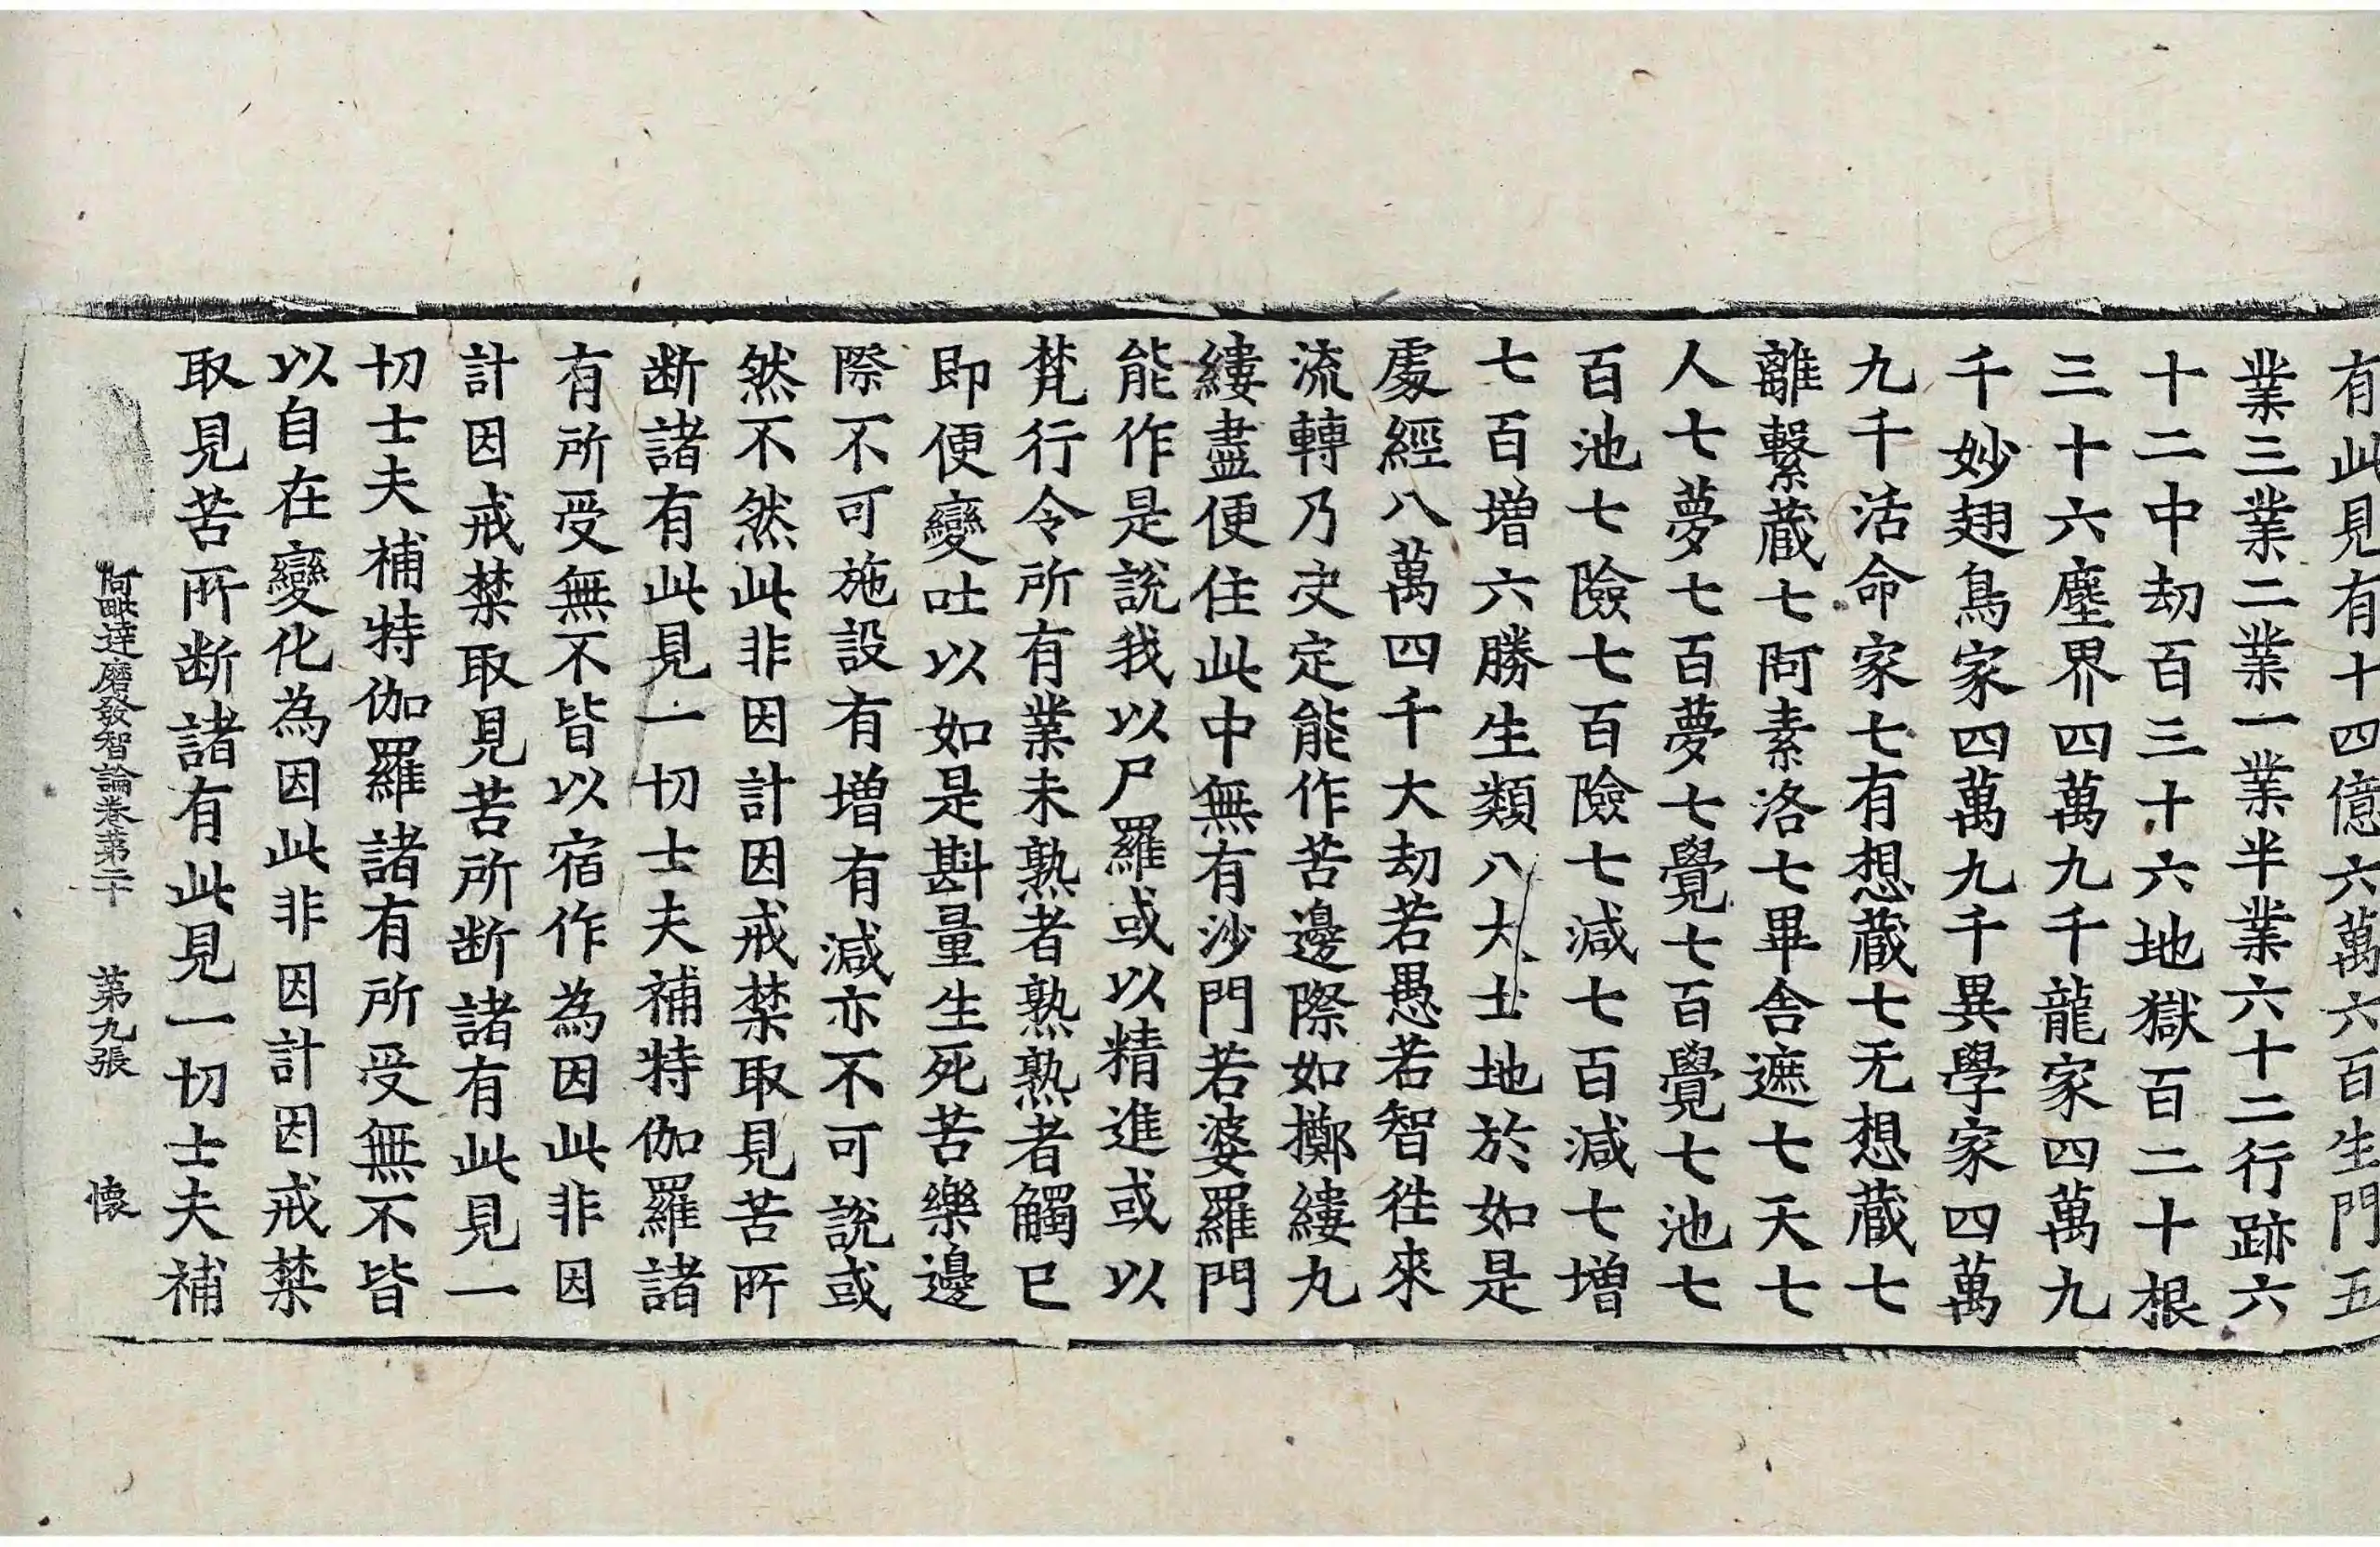 有此見有十四億六萬六百生門五
業三業二業一業半業六十二行跡六
十二中劫百三十六地獄百二十根
三十六塵界四萬九千龍家四萬九
千妙翅鳥家四萬九千異學家四萬
九千活命家七有想蔵七无想蔵七
離繫蔵七阿素洛七畢舎遮七天七
人七夢七百夢七覺七百覺七池七
百池七險七百險七減七百減七增
七百增六勝生類八大士地於如是
處經八萬四千大劫若愚若智徃來
流轉乃决定能作苦邊際如擲縷丸
縷盡便住此中無有沙門若婆羅門
能作是說我以尸羅或以精進或以
梵行令所有業未熟者熟熟者觸已
即便變吐以如是斟量生死苦樂邊
際不可施設有增有減亦不可說或
然不然此非因計因戒禁取見苦所
断諸有此見一切士夫補特伽羅諸
有所受無不皆以宿作為因此非因
計因戒禁取見苦所断諸有此見一
切士夫補特伽羅諸有所受無不皆
以自在變化為因此非因計因戒禁
取見苦所断諸有此見一切士夫補
阿毗達磨發智論卷第二十 第九張 懐